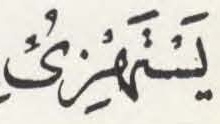 يَسْتَهْزِئُ